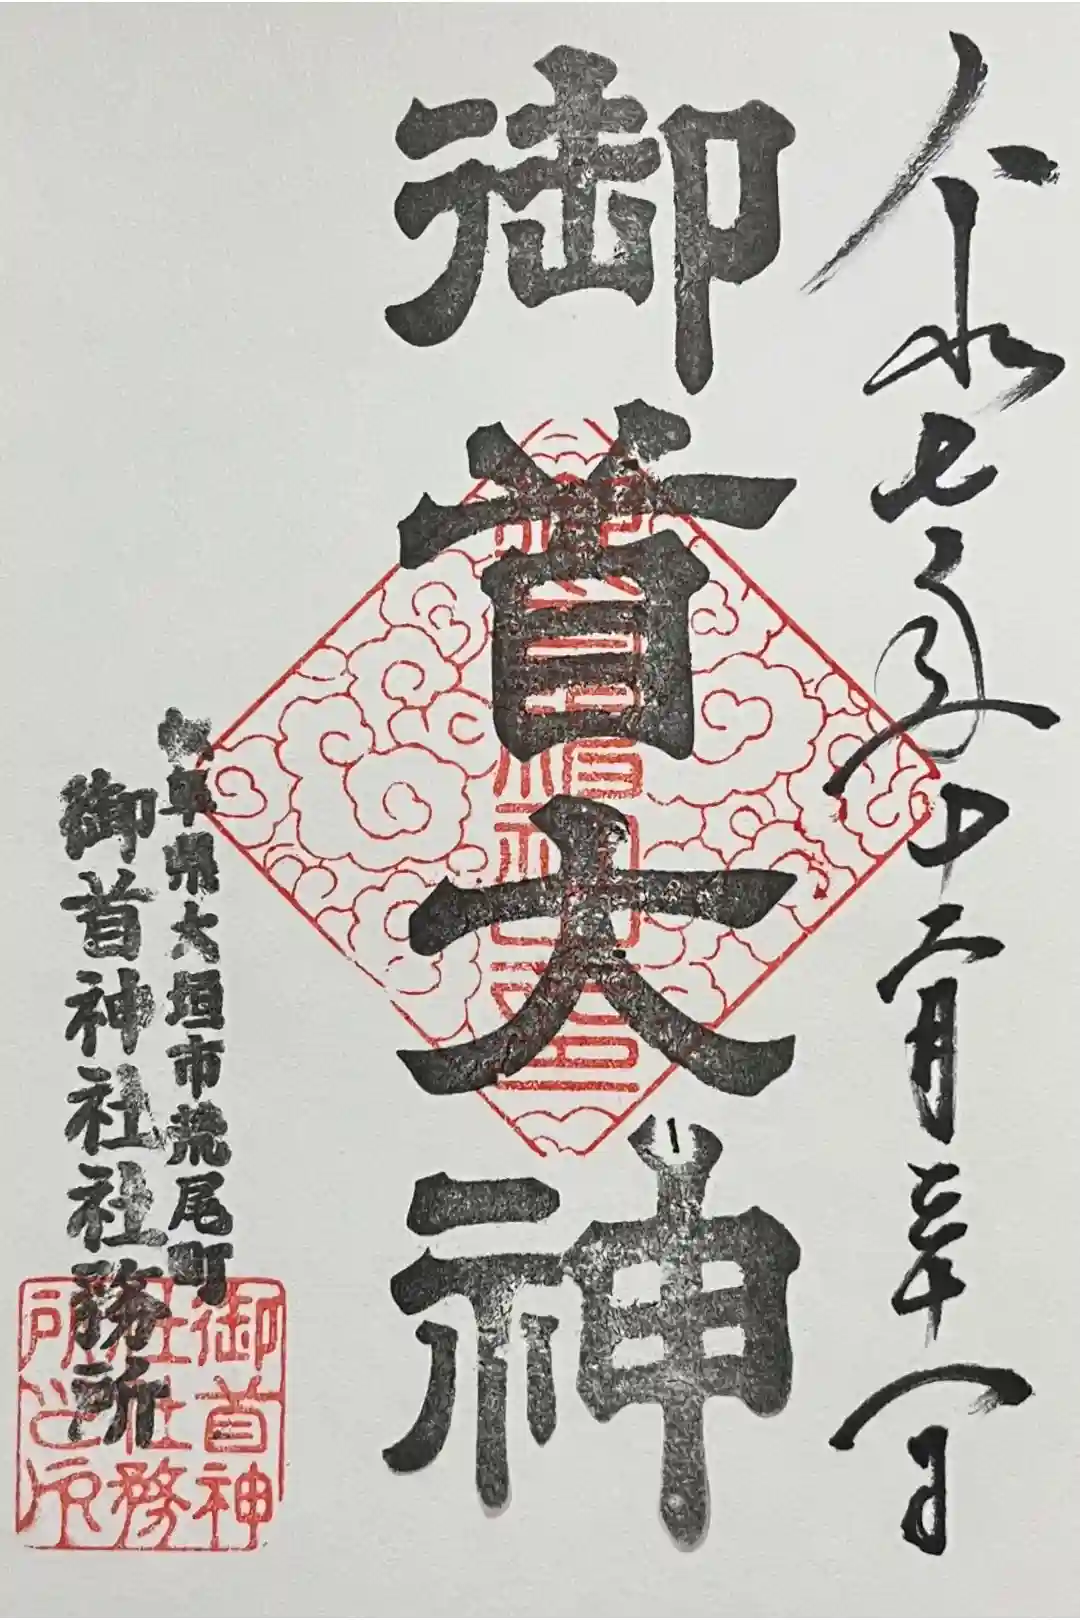 令和七年十二月三十一日
御首大神
岐阜県大垣市荒尾町
御首神社社務所
御首神
社社務
所之印